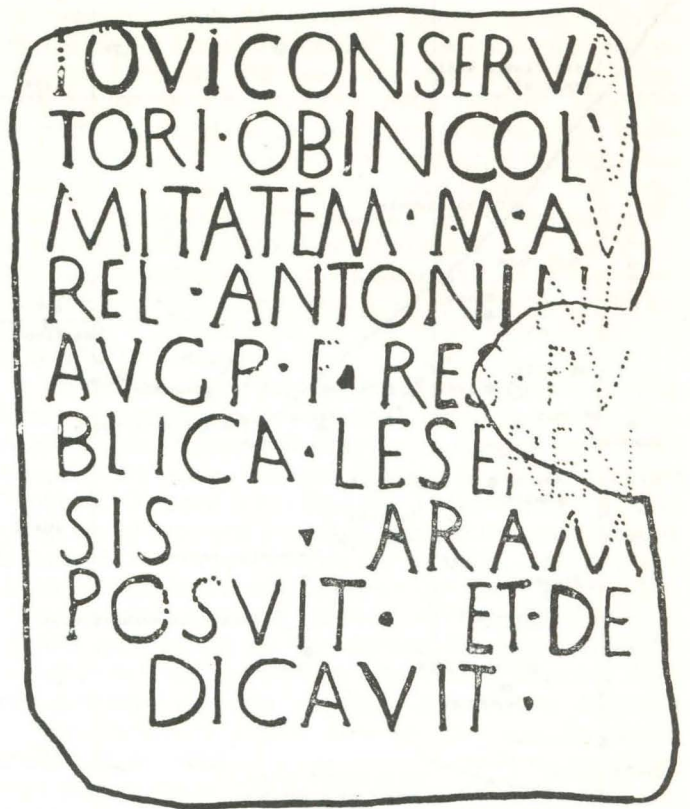 IOVICONSERVA
TORI·OBINCOLV
MITATEM·M·AV
REL·ANTONINI
AVGP·F·RES·PV
BLICA·LESERENI
SIS · ARAM
POSVIT· ET·DE
DICAVIT·